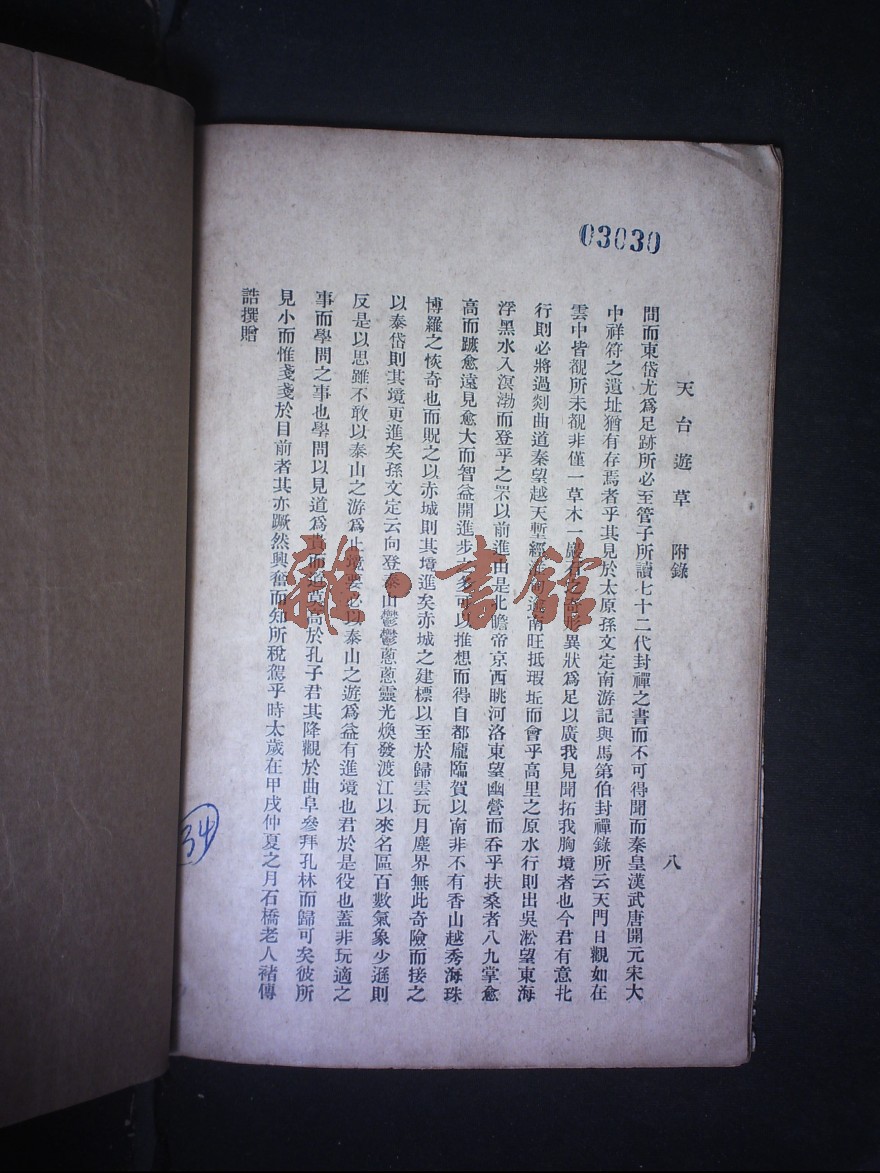 03030
天台遊草 附錄
八
間而東岱尤爲足跡所必至管子所讀七十二代封禪之書而不可得聞而秦皇漢武唐開元宋大
中祥符之遺址猶有存焉者乎其見於太原孫文定南游記與馬第伯封禪錄所云天門日觀如在
雲中皆覩所未覩非僅一草木一巖 異狀爲足以廣我見聞拓我胸境者也今君有意北
行則必將過剡曲道秦望越天塹經 南旺抵瑕坵而會乎高里之原水行則出吳淞望東海
浮黑水入溟渤而登乎之罘以前進由是北瞻帝京西眺河洛東望幽營而吞乎扶桑者八九掌愈
高而蹠愈遠見愈大而智益開進步 多可以推想而得自都龐臨賀以南非不有香山越秀海珠
博羅之恢奇也而貺之以赤城則其境進矣赤城之建標以至於歸雲玩月塵界無此奇險而接之
以泰岱則其境更進矣孫文定云向登泰山鬱鬱蔥蔥靈光煥發渡江以來名區百數氣象少遜則
反是以思雖不敢以泰山之游爲止境要必以泰山之遊爲益有進境也君於是役也蓋非玩適之
事而學問之事也學問以見道爲 而道莫高於孔子君其降觀於曲阜參拜孔林而歸可矣彼所
見小而惟戔戔於目前者其亦蹶然興奮而知所稅駕乎時太歲在甲戌仲夏之月石橋老人褚傳
誥撰贈
34
雜·書館